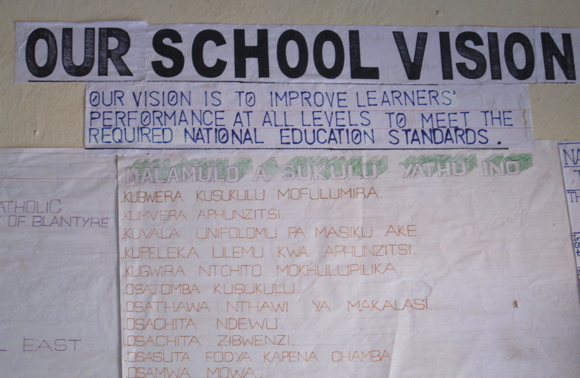 OUR SCHOOL VISION
OUR VISION IS TO IMPROVE LEARNERS'
PERFORMANCE AT ALL LEVELS TO MEET THE
REQUIRED NATIONAL EDUCATION STANDARDS.
MALAMULO A SUKULU YATHU INO
KUBWERA KUSUKULU MOFULUMIRA.
KUMVERA APHUNZITSI.
KUVALA UNIFOLOMU PA MASIKU AKE
KUPELEKA ULEMU KWA APHUNZITSI.
KUGWIRA NTCHITO MOKHULUPILIKA.
OSATOMBA KUSUKULU.
OSATHAWA NTHAWI YA MAKALASI.
OSACHITA NDEWU.
OSACHITA ZIBWENZI.
OSASUTA FODYA KAPENA CHAMBA
OSAMWA MOWA.
ATHOLIC
OF BLANTYRE
EAST